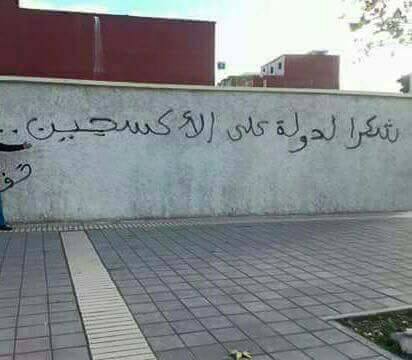 شكرا لدولة على الأكسجين..